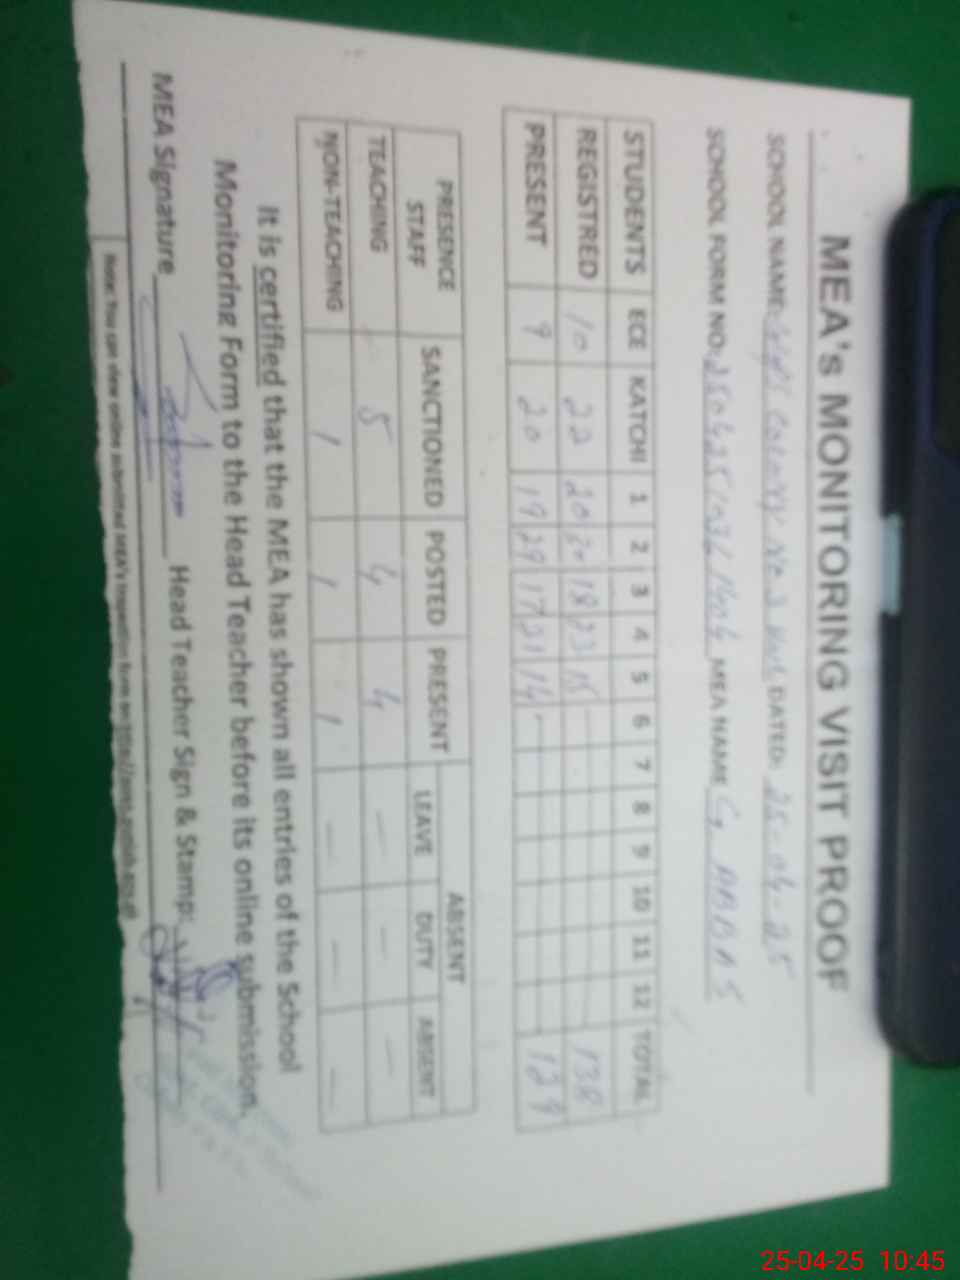 MEA's MONITORING VISIT PROOF
SCHOOL NAME: COLONY No.3 DATED: 25-04-25
SCHOOL FORM NO: MEA NAME G ABBAS
STUDENTS ECE KATCHI 1 2 3 4 5 6 7 8 9 10 11 12 TOTAL
REGISTRED 10 22 20 30 18 23 15 — 138
PRESENT 9 20 19 29 17 21 14 — 129
PRESENCE STAFF SANCTIONED POSTED PRESENT ABSENT
LEAVE DUTY ABSENT
TEACHING 5 4 4 — — —
NON-TEACHING 1 1 1 — — —
It is certified that the MEA has shown all entries of the School
Monitoring Form to the Head Teacher before its online submission.
MEA Signature Head Teacher Sign & Stamp:
Note: You can view online submitted MEA's inspection form on
25-04-25 10:45